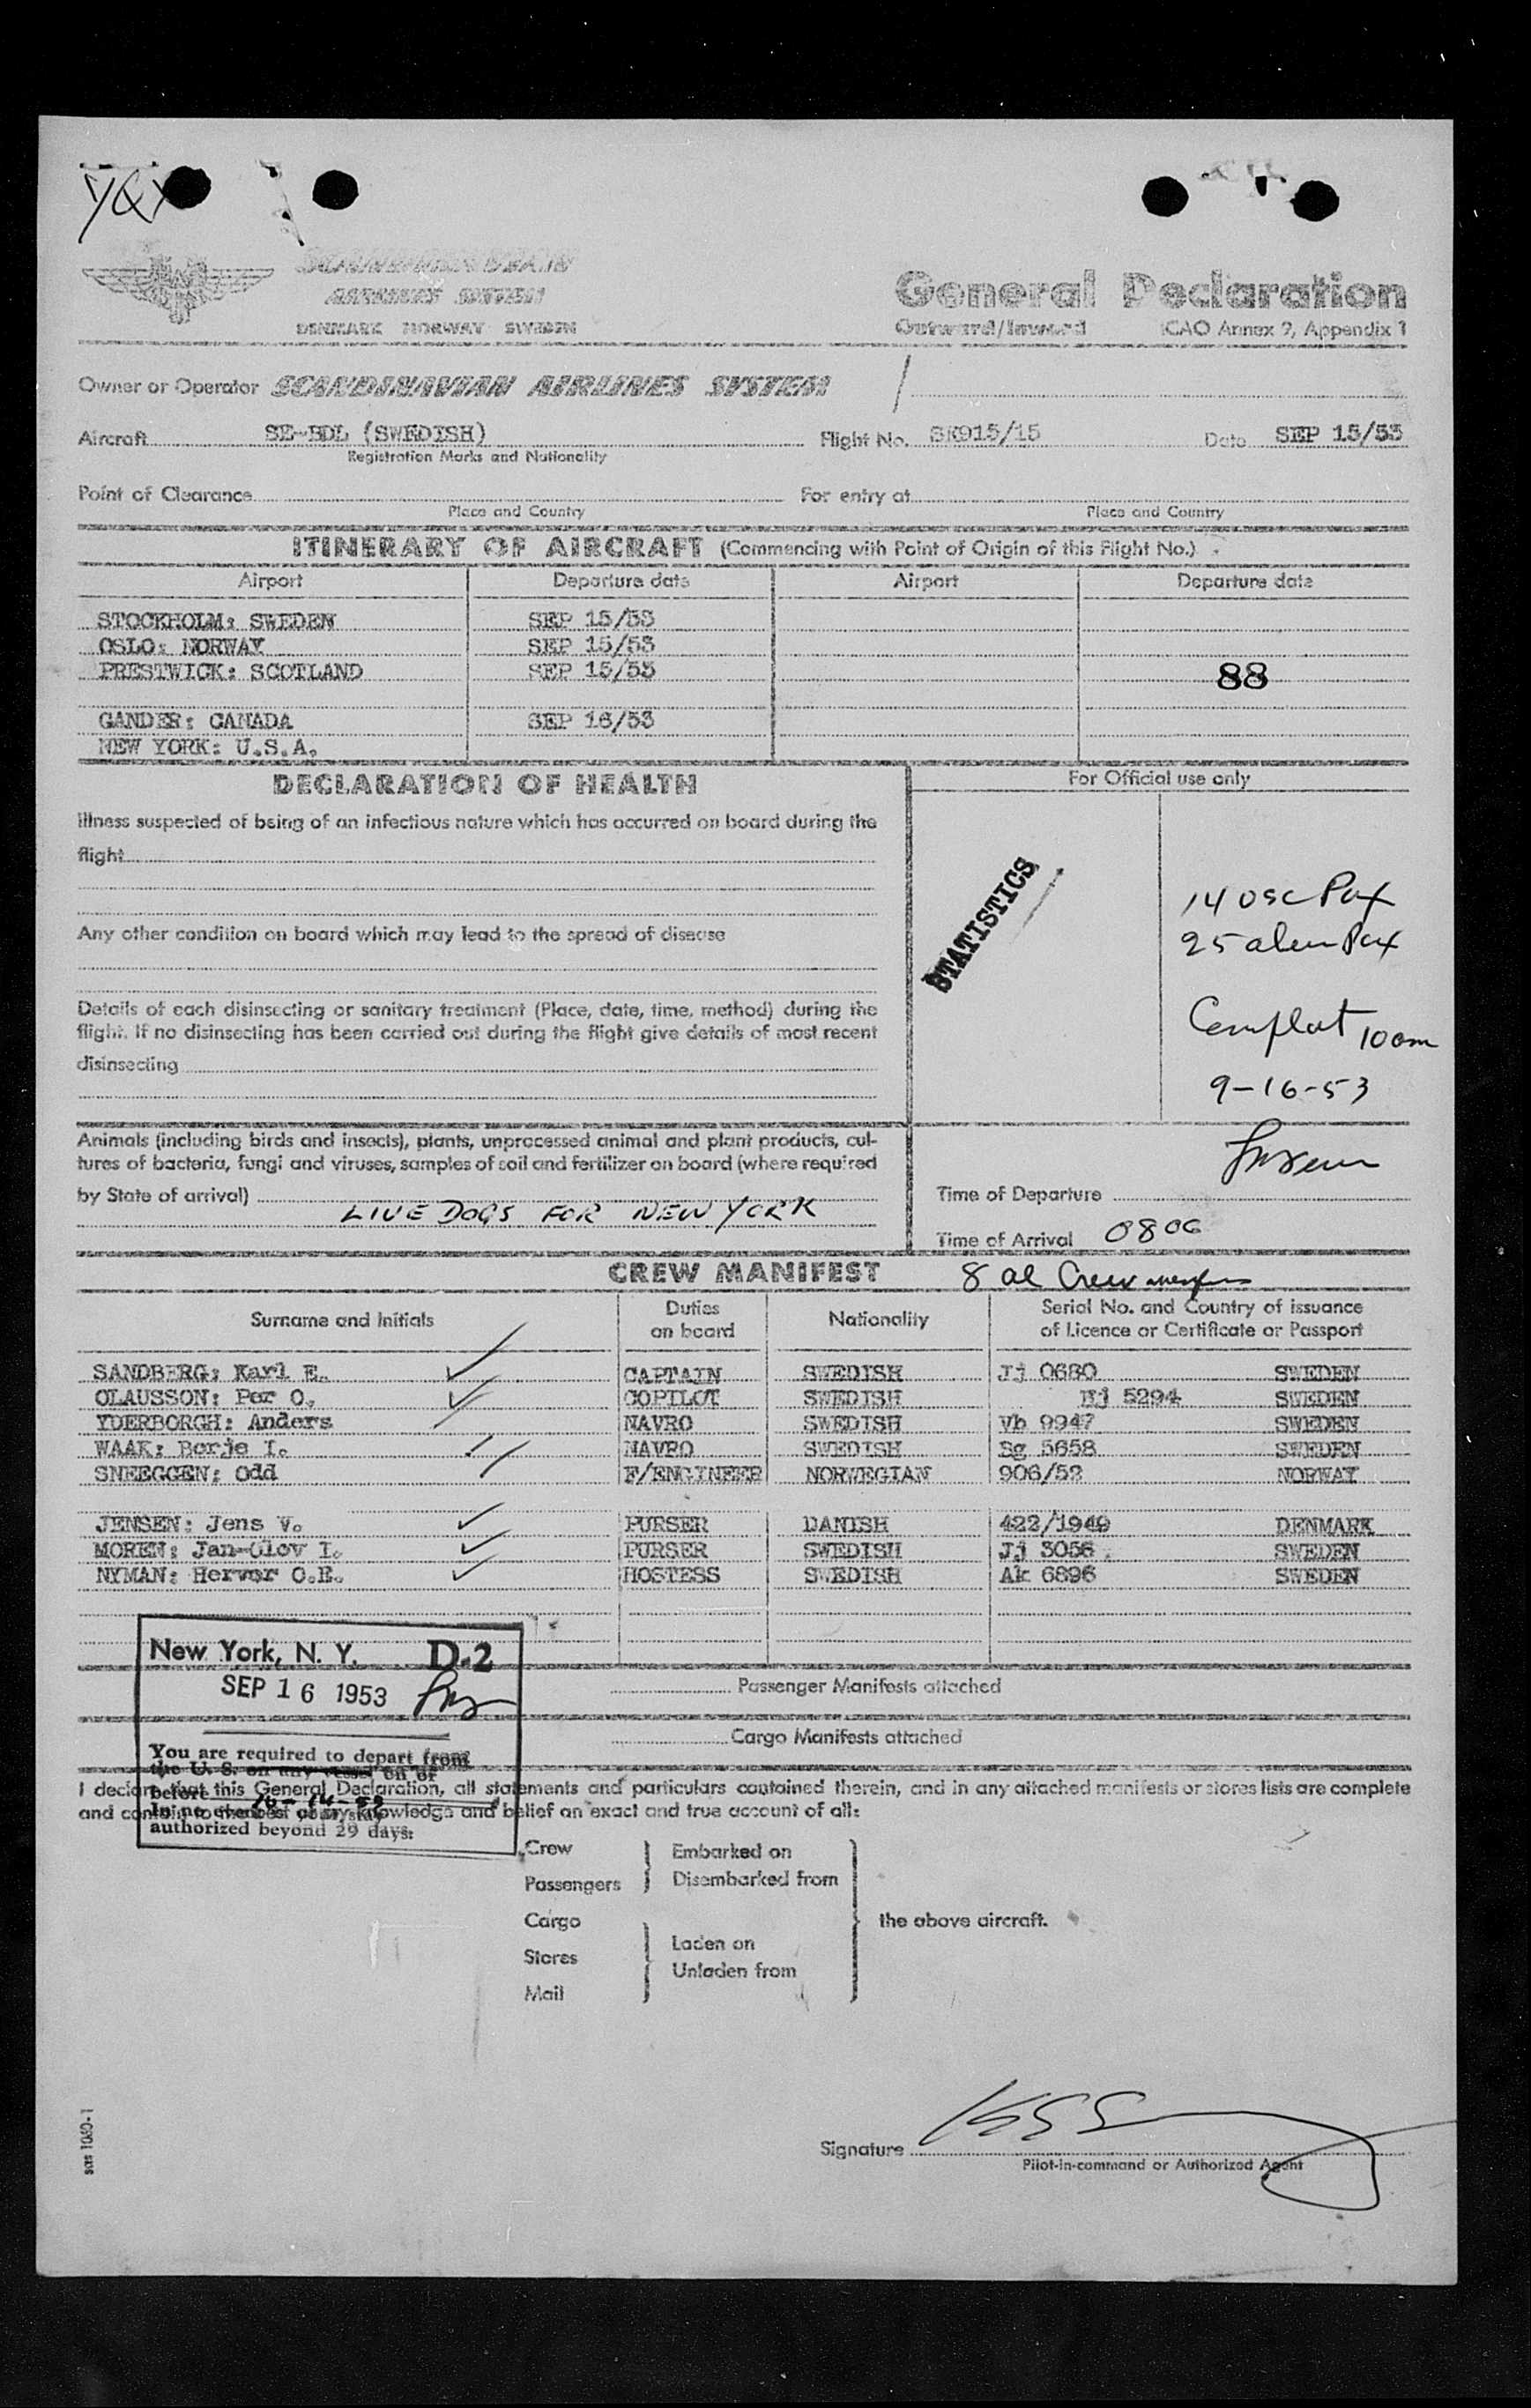 SCANDINAVIAN
AIRLINES SYSTEM
DENMARK NORWAY SWEDEN
General Declaration
Outward/Inward ICAO Annex 9, Appendix 1
Owner or Operator SCANDINAVIAN AIRLINES SYSTEM
Aircraft SE-BDL (SWEDISH) Flight No. SK915/15 Date SEP 15/53
Registration Marks and Nationality
Point of Clearance For entry at
Place and Country Place and Country
ITINERARY OF AIRCRAFT (Commencing with Point of Origin of this Flight No.)
Airport Departure date Airport Departure date
STOCKHOLM: SWEDEN SEP 15/53
OSLO: NORWAY SEP 15/53
PRESTWICK: SCOTLAND SEP 15/53 88
GANDER: CANADA SEP 16/53
NEW YORK: U.S.A.
DECLARATION OF HEALTH For Official use only
Illness suspected of being of an infectious nature which has occurred on board during the
flight
Any other condition on board which may lead to the spread of disease
Details of each disinsecting or sanitary treatment (Place, date, time, method) during the
flight. If no disinsecting has been carried out during the flight give details of most recent
disinsecting
STATISTICS
14 USC Pax
25 alien Pax
Complet 10 am
9-16-53
Animals (including birds and insects), plants, unprocessed animal and plant products, cul-
tures of bacteria, fungi and viruses, samples of soil and fertilizer on board (where required
by State of arrival)
LIVE DOGS FOR NEW YORK
Time of Departure
Time of Arrival 0806
CREW MANIFEST 8 al Crew members
Surname and Initials Duties on board Nationality Serial No. and Country of issuance of Licence or Certificate or Passport
SANDBERG: Karl E. CAPTAIN SWEDISH Jj 0680 SWEDEN
OLAUSSON: Per O. COPILOT SWEDISH Hj 5294 SWEDEN
YDERBORGH: Anders NAVRO SWEDISH Vb 9947 SWEDEN
WAAK: Borje I. NAVRO SWEDISH Sg 5658 SWEDEN
SNEEGGEN: Odd F/ENGINEER NORWEGIAN 906/52 NORWAY
JENSEN: Jens V. PURSER DANISH 422/1949 DENMARK
MOREN: Jan-Olov I. PURSER SWEDISH Jj 3056 SWEDEN
NYMAN: Hervor O.E. HOSTESS SWEDISH Ak 6896 SWEDEN
New York, N. Y. D-2
SEP 16 1953
Passenger Manifests attached
Cargo Manifests attached
You are required to depart from
the U. S. on any vessel on or
before
authorized beyond 29 days.
I declare that this General Declaration, all statements and particulars contained therein, and in any attached manifests or stores lists are complete
and contain to the best of my knowledge and belief an exact and true account of all:
Crew Embarked on
Passengers Disembarked from
Cargo the above aircraft.
Stores Laden on
Unladen from
Mail
Signature
Pilot-in-command or Authorized Agent
sas 1060-1